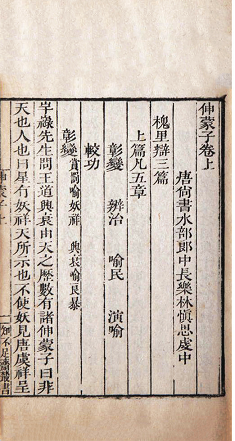 伸蒙子卷上
唐尚書水部郎中長樂林慎思虔中
槐里辯三篇
上篇凡五章
彰變 辨治 喻民 演喻
較功
彰變 賞罰喻妖祥 興衰喻良暴
芉祿先生問王道興衰由天之歷數有諸伸蒙子曰非
天也人也曰星有妖祥天所示也不使妖見唐虞祥呈
伸蒙子上 一 知不足齋叢書